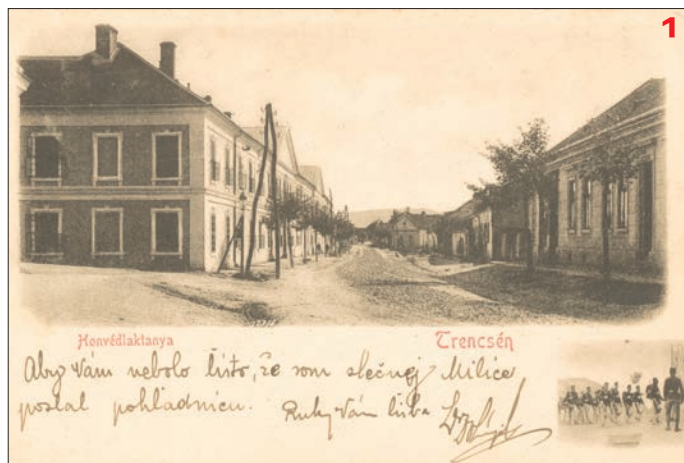 1
Honvédlaktanya
Trencsén
Aby Vám nebolo ľúto, že som slečnej Milice
poslal pohladnicu. Ruky Vám lúba